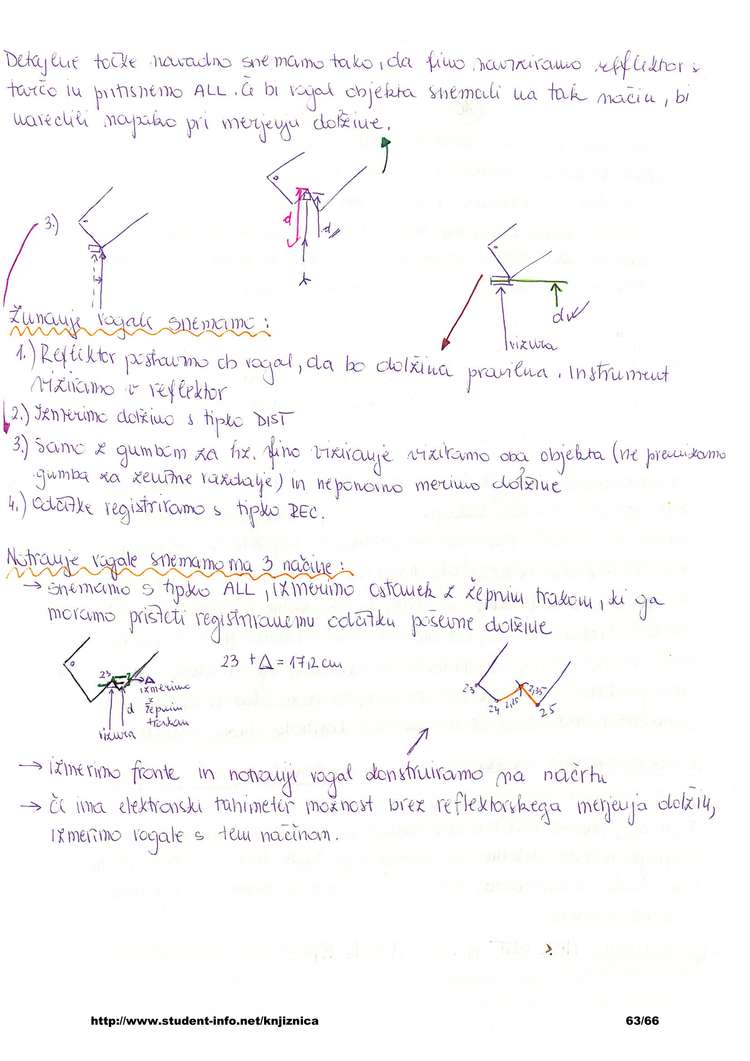 Detajlne točke navadno snemamo tako, da fino naviziramo reflektor s
tarčo in pritisnemo ALL. Če bi vogal objekta snemali na tak način, bi
naredili napako pri merjenju dolžine.
d
d
3.)
d
vizura
Zunanje vogale snemamo:
1.) Reflektor postavimo ob vogal, da bo dolžina pravilna. Instrument
viziramo v reflektor
2.) Izmerimo dolžino s tipko DIST
3.) Samo z gumbom za hz. fino viziranje viziramo oba objekta (ne premikamo
gumba za zenitne razdalje) in neponovno merimo dolžine
4.) Odčitke registriramo s tipko REC.
Notranje vogale snemamo na 3 načine:
→ snemamo s tipko ALL, izmerimo ostanek z žepnim trakom, ki ga
moramo prišteti registriranemu odčitku poševne dolžine
23 + Δ = 17,2 cm
23
Δ
izmerimo
z
d žepnim
trakom
vizura
23
24
2,35
25
→ izmerimo fronte in notranji vogal konstruiramo na načrtu
→ Če ima elektronski tahimeter možnost brez reflektorskega merjenja dolžin,
izmerimo vogale s tem načinom.
http://www.student-info.net/knjiznica 63/66